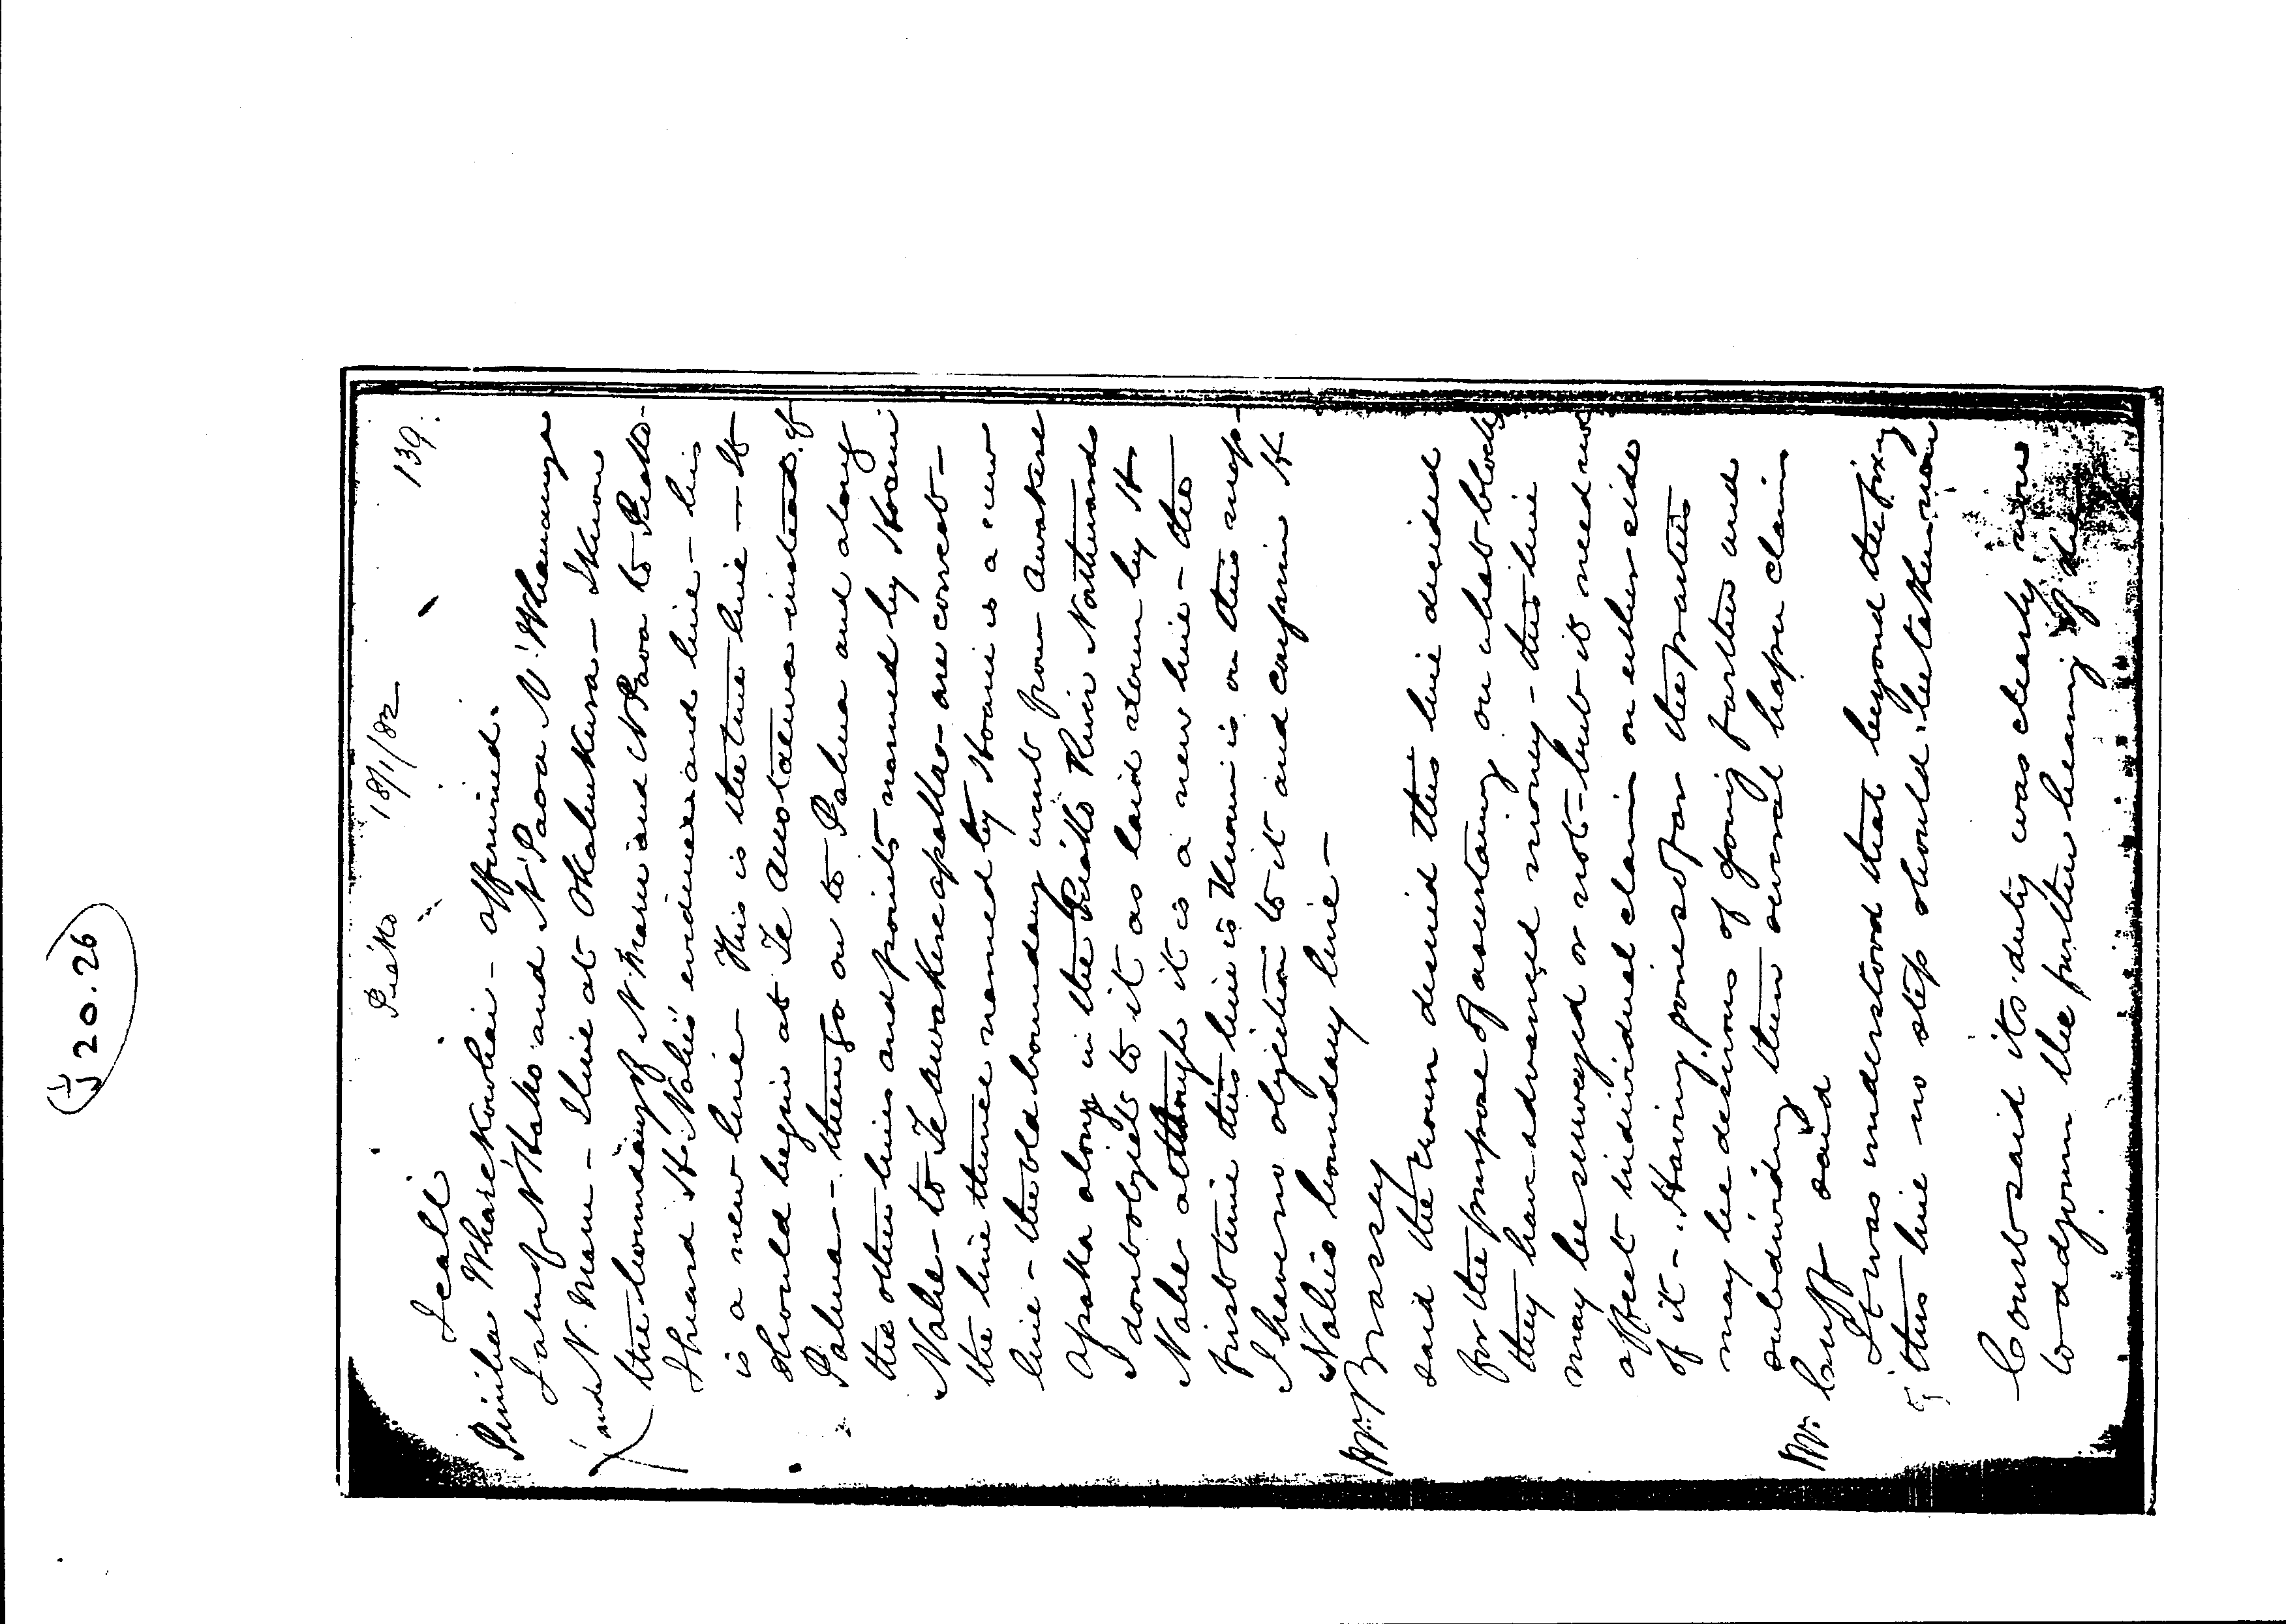 J 20.26
Piako 18/1/82 139.
I call
Pineha Wharekowhai - affirmed.
I am of N'Hako and N'Paoa N'Whanaunga
and N. Maru - I live at Ohakukura - I know
the boundary of N'Maru and N'Paoa to Piako -
I heard H. Nahe's evidence and line - his
is a new line - This is the true line - It
should begin at Te Awotatua instead of
Pahua - then go on to Pahua and along
the other lines and points named by Hoani
Nahe - to Te Awakereapaka - are correct -
the line thence named by Hoani is a new
line - the old boundary went from Awakere
apaka along in the Piako River Northwards
I don't object to it as laid down by H
Nahe although it is a new line - the
first time this line is known is on this map -
I have no objection to it and confirm H.
Nahe's boundary line -
Mr. Brassey
said the crown desired this line decided
for the purpose of ascertaining on what blocks
they have advanced money - this line
may be surveyed or not - but it need not
affect individual claim on either side
of it - Having gone so far the parties
may be desirous of going further and
subdividing their several hapu claim
Mr. Cuff said
It was understood that beyond the fixing
of this line no step should be taken now
Court said its duty was clearly now
to adjourn the further hearing of the